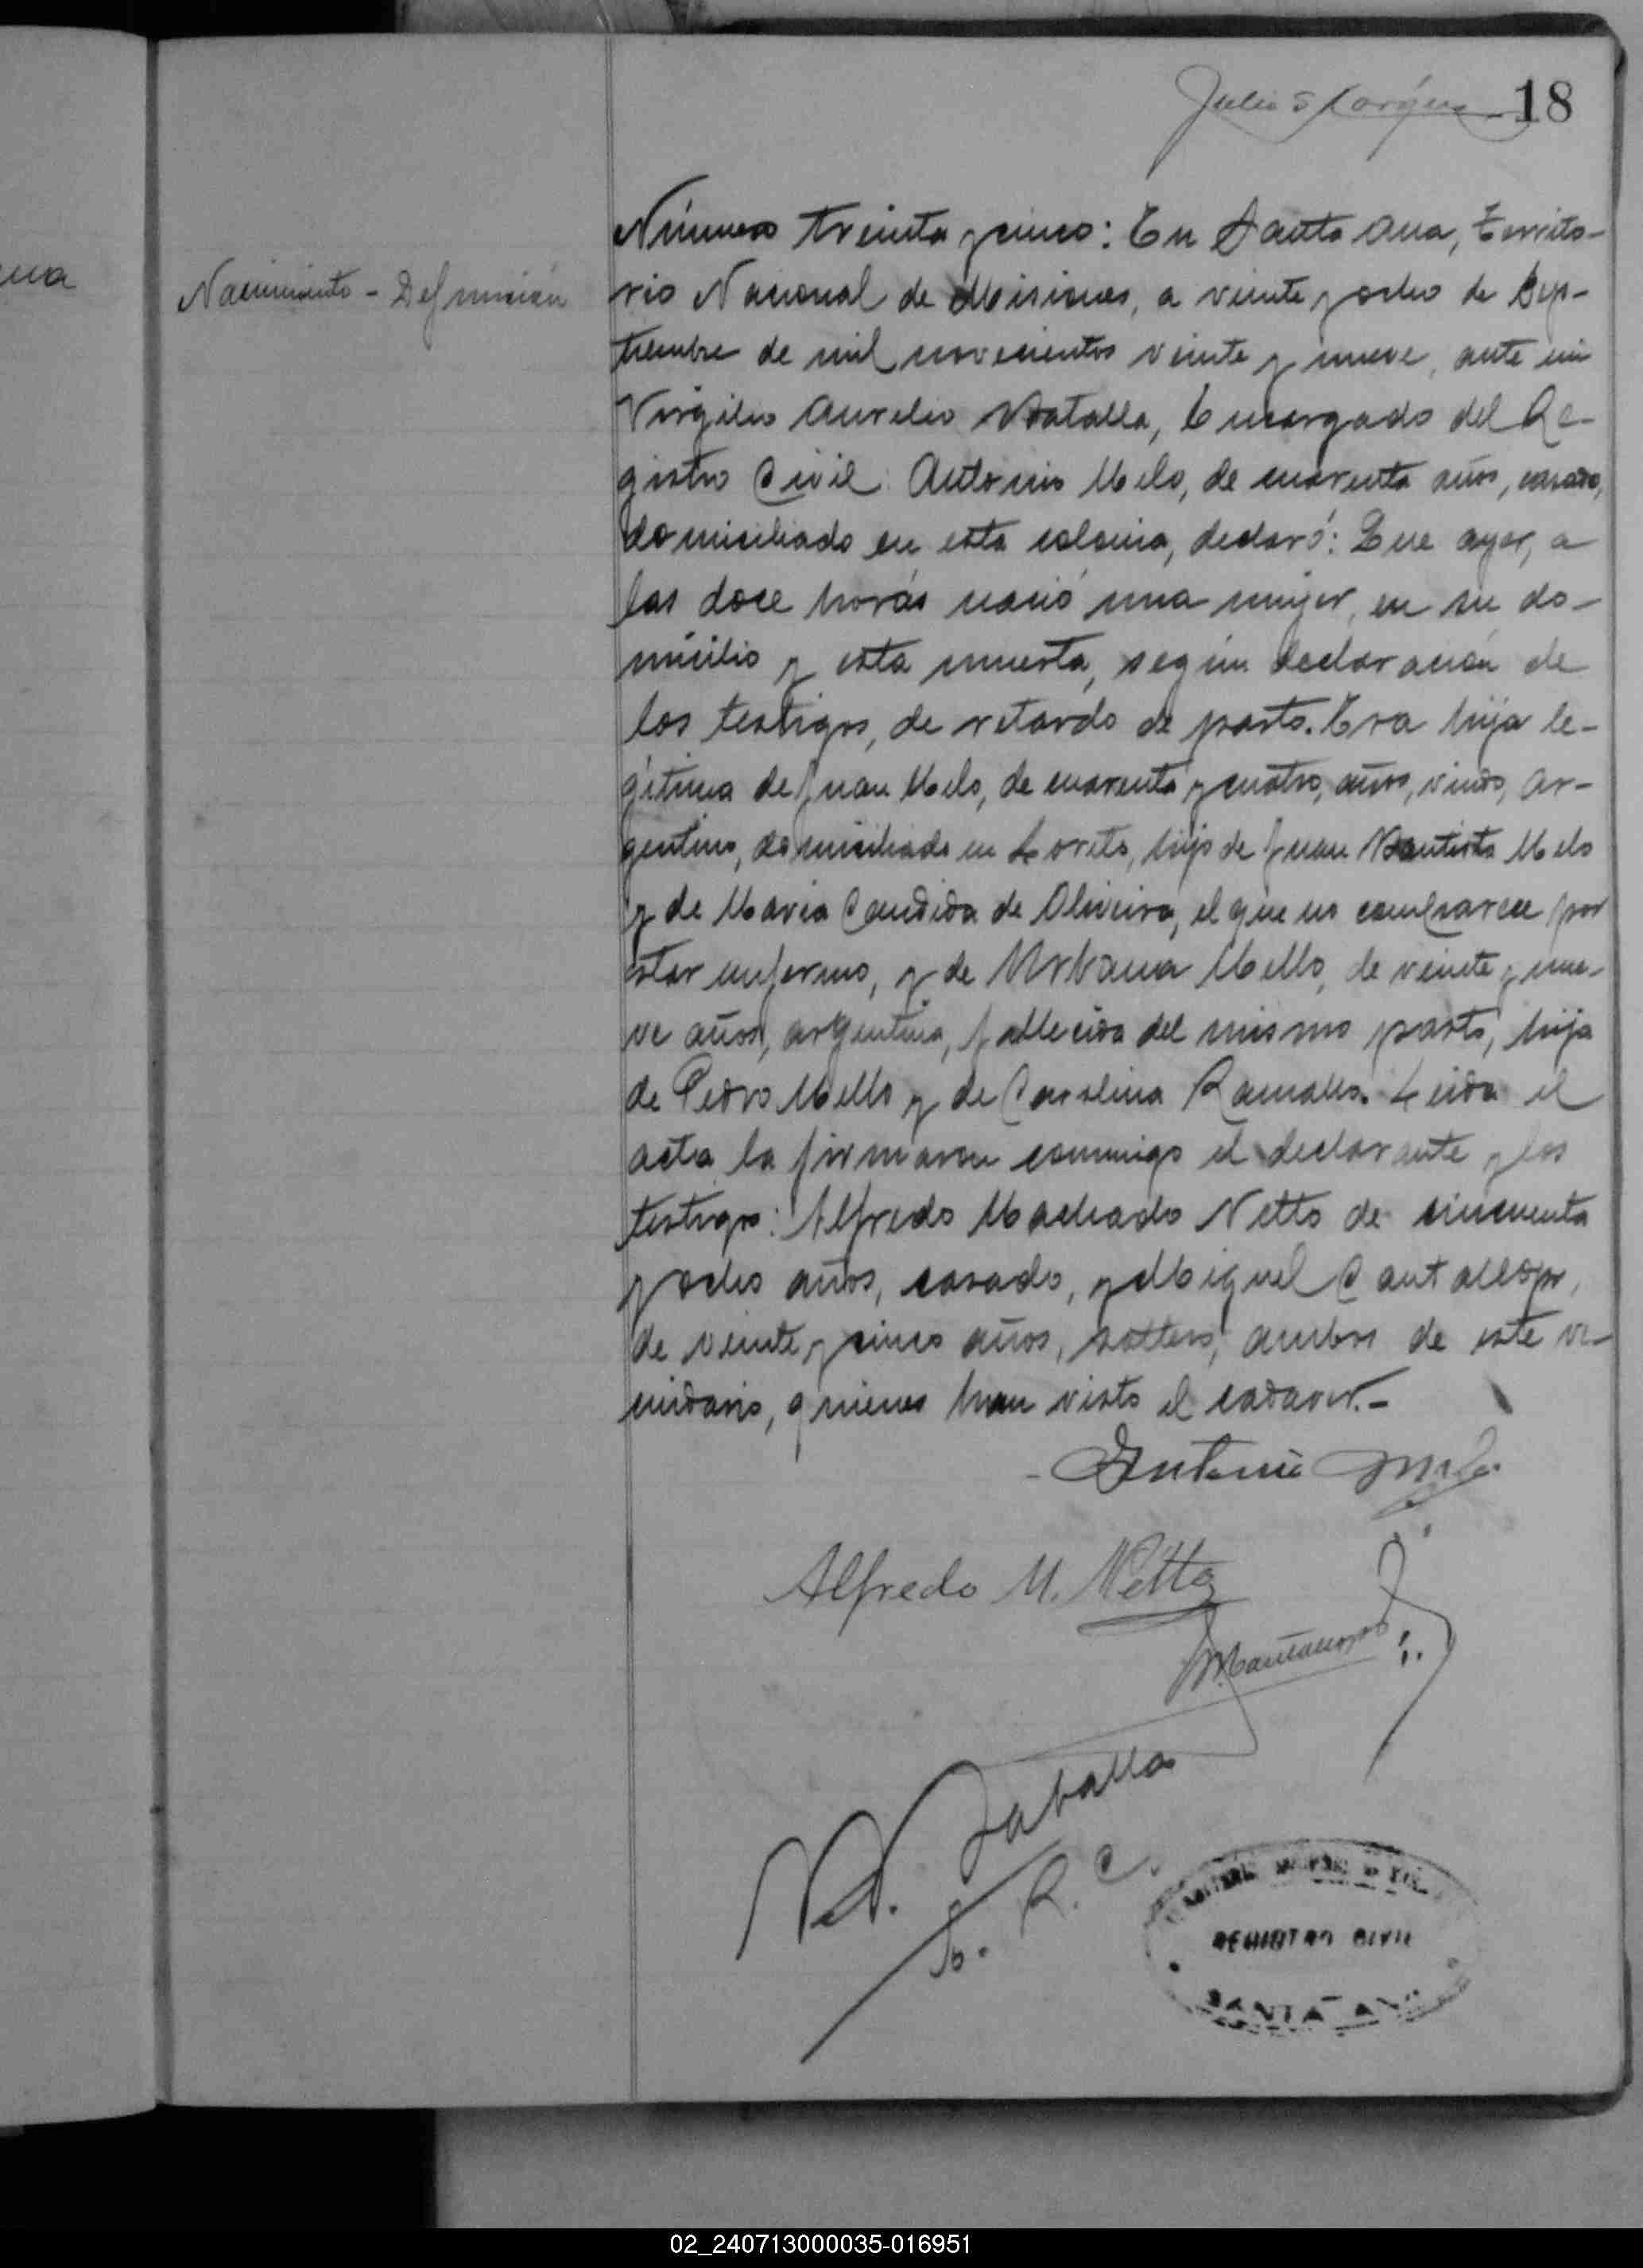 18
Número treinta y cinco: En Santa Ana, Territo-
Nacimiento - Defunción
rio Nacional de Misiones, a veinte y ocho de Sep-
tiembre de mil novecientos veinte y nueve, ante mi
Virgilio Aurelio Batalla, Encargado del Re-
gistro Civil: Antonio Melo, de cuarenta años, casado,
domiciliado en esta colonia, declaró: Que ayer, a
las doce horas nació una mujer, en su do-
micilio y esta muerta, según declaración de
los testigos, de retardo de parto. Era hija le-
gitima de Juan Melo, de cuarenta y cuatro, años, viudo, ar-
gentino, domiciliado en Loreto, hijo de Juan Bautista Melo
y de Maria Candida de Oliveira, el que no comparece por
estar enfermo, y de Urbana Mello, de veinte y nue-
ve años, argentina, fallecida del mismo parto, hija
de Pedro Mello y de Carolina Ramalho. Leida el
acta la firmaron conmigo el declarante y los
testigos: Alfredo Machado Netto de cincuenta
y ocho años, casado, y Miguel Cantallops,
de veinte y cinco años, soltero, ambos de este ve-
cindario, quienes han visto el cadaver.-
Antonio Melo
Alfredo M. Netto
E. R. C.
REGISTRO CIVIL
SANTA ANA
02_240713000035-016951